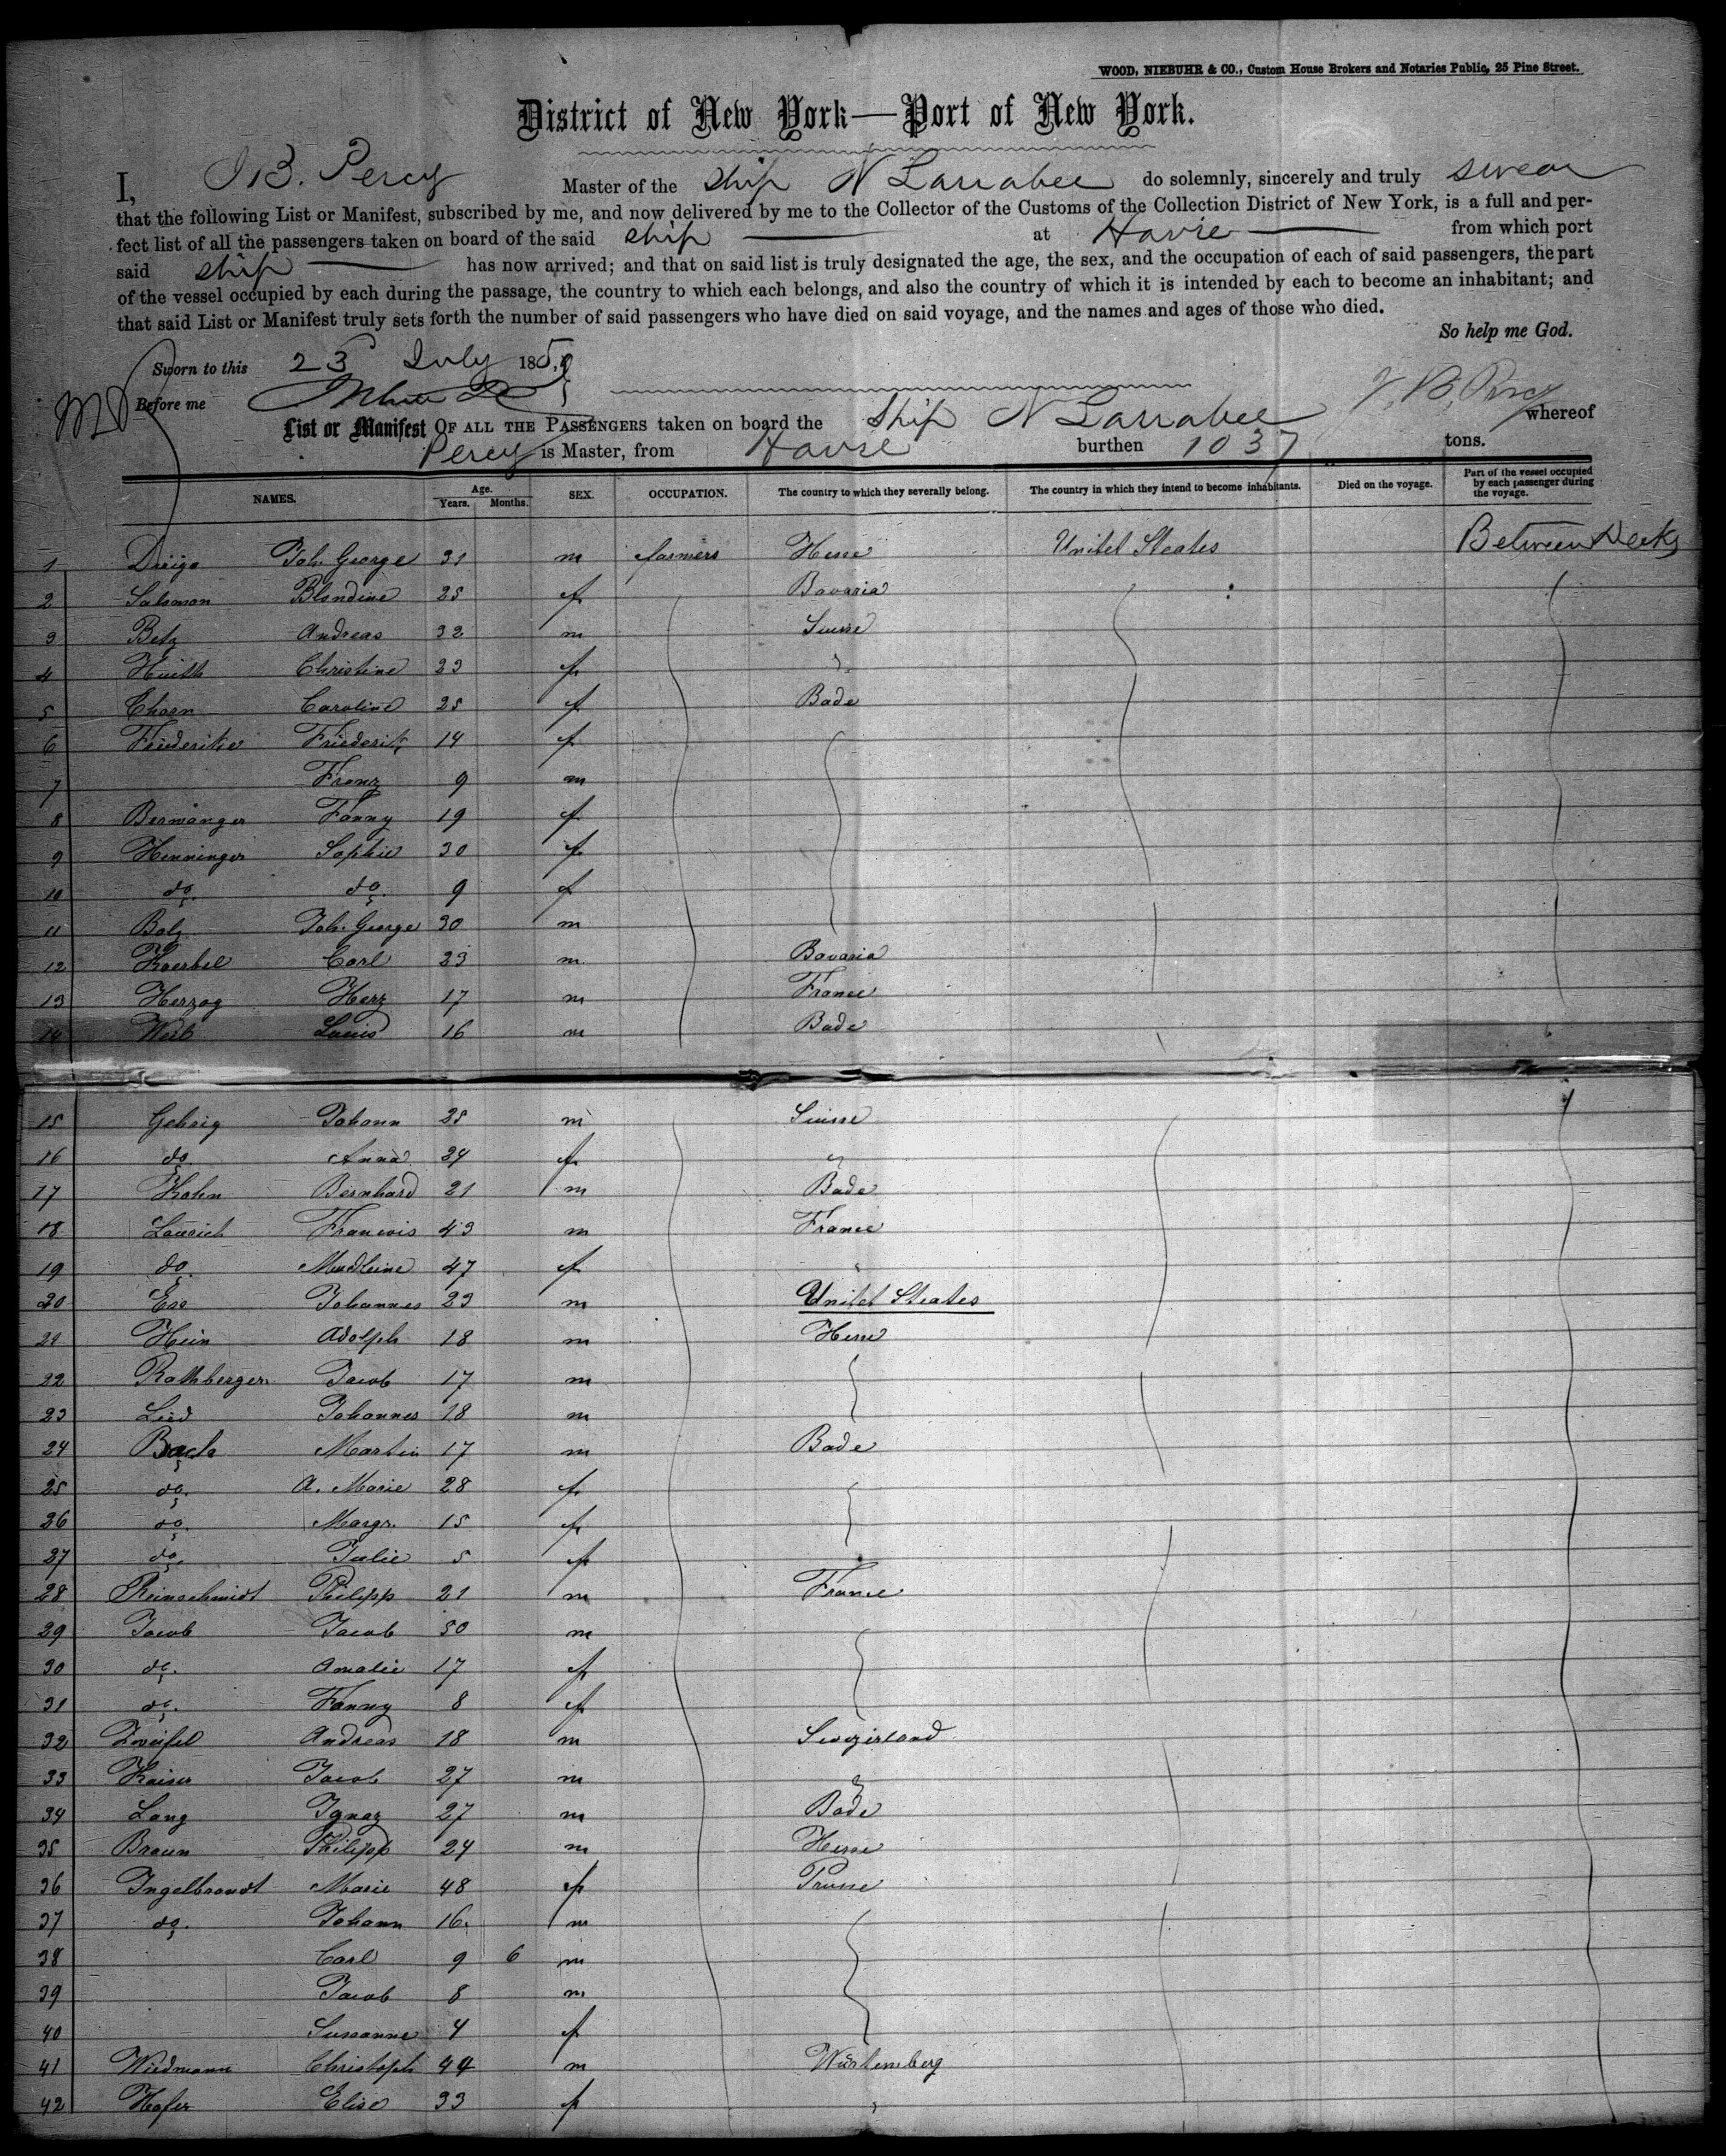 WOOD, NIEBUHR & CO., Custom House Brokers and Notaries Public, 25 Pine Street.
District of New York—Port of New York.
I, B. Percy Master of the ship N Larrabee do solemnly, sincerely and truly swear
that the following List or Manifest, subscribed by me, and now delivered by me to the Collector of the Customs of the Collection District of New York, is a full and per-
fect list of all the passengers taken on board of the said ship at Havre from which port
said ship has now arrived; and that on said list is truly designated the age, the sex, and the occupation of each of said passengers, the part
of the vessel occupied by each during the passage, the country to which each belongs, and also the country of which it is intended by each to become an inhabitant; and
that said List or Manifest truly sets forth the number of said passengers who have died on said voyage, and the names and ages of those who died.
So help me God.
Sworn to this 23 July 1859
Before me B. Percy
List or Manifest OF ALL THE PASSENGERS taken on board the Ship N Larrabee whereof
Percy is Master, from Havre burthen 1037 tons.
NAMES. Age. Years. Months. SEX. OCCUPATION. The country to which they severally belong. The country in which they intend to become inhabitants. Died on the voyage. Part of the vessel occupied by each passenger during the voyage.
1 Dirigo Joh. George 31 m farmers Hesse Unitet Steates Between Decks
2 Salomon Blondine 25 f Bavaria
3 Betz Andreas 32 m Suisse
4 Huith Christine 23 f "
5 Chorn Caroline 25 f Bade
6 Friederike Friederik 14 f
7 Franz 9 m
8 Berwanger Fanny 19 f
9 Henninger Sophie 30 f
10 do. do. 9 f
11 Bolz Joh. George 30 m
12 Koerbel Carl 23 m Bavaria
13 Herzog Herz 17 m France
14 Weil Louis 16 m Bade
15 Gehrig Johann 25 m Suisse
16 do. Anna 24 f "
17 Kohn Bernhard 21 m Bade
18 Laurich Francois 43 m France
19 do. Madleine 47 f "
20 Ess Johannes 23 m Unitet Steates
21 Hein Adolph 18 m Hesse
22 Rothberger Jacob 17 m
23 Lied Johannes 18 m
24 Bach Martin 17 m Bade
25 do. A. Marie 28 f
26 do. Margr. 15 f
27 do. Julie 5 f
28 Reinschmidt Philipp 21 m France
29 Jacob Jacob 50 m
30 do. Amalie 17 f
31 do. Fanny 8 f
32 Zweifel Andreas 18 m Swizirland
33 Kaiser Jacob 27 m "
34 Lang Ignaz 27 m Bade
35 Braun Philipp 24 m Hesse
36 Ingelbrandt Marie 48 f Prusse
37 do. Johann 16 m
38 Carl 9 6 m
39 Jacob 8 m
40 Sussanne 4 f
41 Wiedmann Christoph 44 m Würtemberg
42 Hofer Elise 33 f "